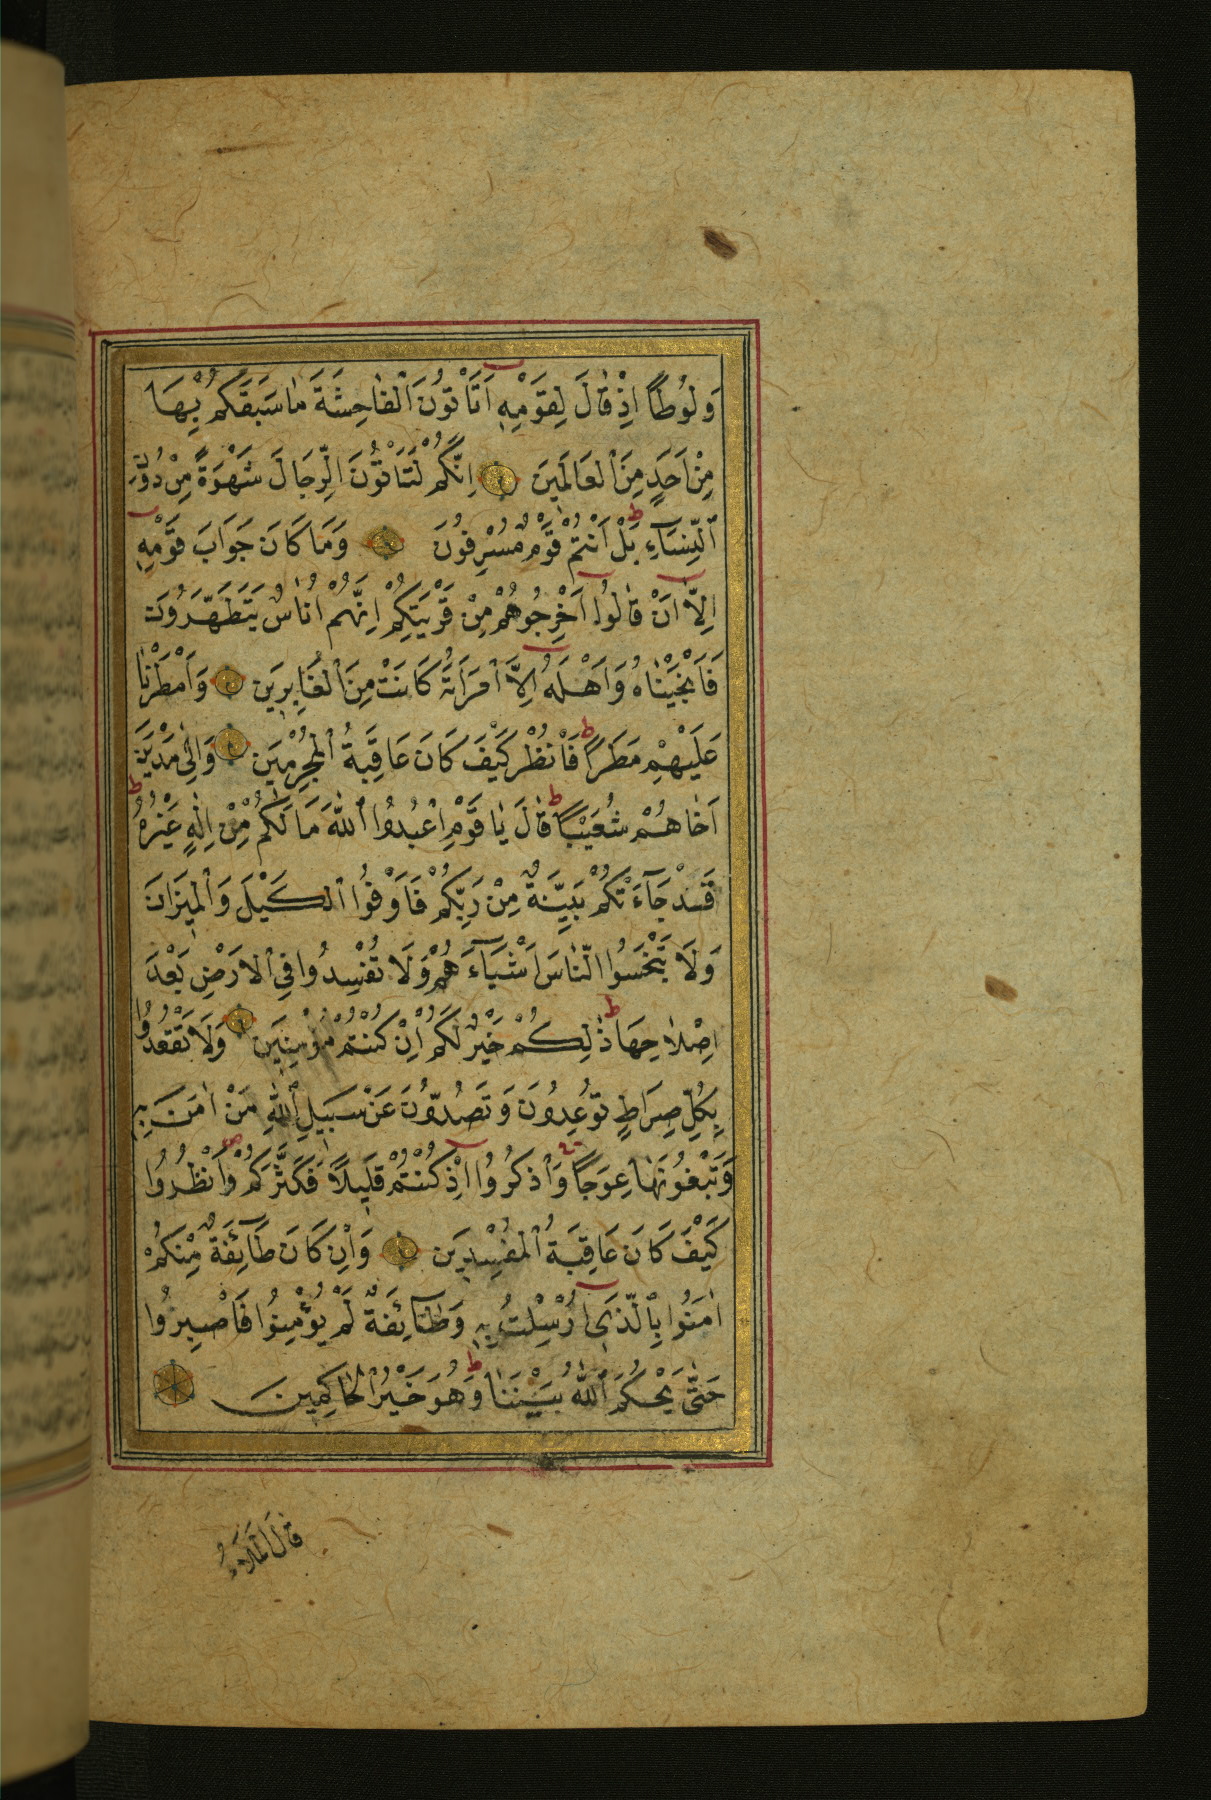 وَلُوطًا اِذْ قَالَ لِقَوْمِهٖ اَتَأْتُونَ ٱلْفَاحِشَةَ مَا سَبَقَكُمْ بِهَا
مِنْ اَحَدٍ مِنَ ٱلْعَالَمِينَ اِنَّكُمْ لَتَأْتُونَ ٱلرِّجَالَ شَهْوَةً مِنْ دُونِ
ٱلنِّسَآءِ بَلْ اَنْتُمْ قَوْمٌ مُسْرِفُونَ وَمَا كَانَ جَوَابَ قَوْمِهٖ
اِلَّا اَنْ قَالُوا اَخْرِجُوهُمْ مِنْ قَرْيَتِكُمْ اِنَّهُمْ اُنَاسٌ يَتَطَهَّرُونَ
فَاَنْجَيْنَاهُ وَاَهْلَهُ اِلَّا ٱمْرَاَتَهُ كَانَتْ مِنَ ٱلْغَابِرِينَ وَاَمْطَرْنَا
عَلَيْهِمْ مَطَرًا فَٱنْظُرْ كَيْفَ كَانَ عَاقِبَةُ ٱلْمُجْرِمِينَ وَاِلٰى مَدْيَنَ
اَخَاهُمْ شُعَيْبًا قَالَ يَا قَوْمِ اعْبُدُوا ٱللّٰهَ مَا لَكُمْ مِنْ اِلٰهٍ غَيْرُهُ
قَدْ جَآءَتْكُمْ بَيِّنَةٌ مِنْ رَبِّكُمْ فَاَوْفُوا ٱلْكَيْلَ وَٱلْمِيزَانَ
وَلَا تَبْخَسُوا النَّاسَ اَشْيَآءَهُمْ وَلَا تُفْسِدُوا فِي ٱلْاَرْضِ بَعْدَ
اِصْلَاحِهَا ذٰلِكُمْ خَيْرٌ لَكُمْ اِنْ كُنْتُمْ مُؤْمِنِينَ وَلَا تَقْعُدُوا
بِكُلِّ صِرَاطٍ تُوعِدُونَ وَتَصُدُّونَ عَنْ سَبِيلِ ٱللّٰهِ مَنْ اٰمَنَ بِهٖ
وَتَبْغُونَهَا عِوَجًا وَٱذْكُرُوا اِذْ كُنْتُمْ قَلِيلًا فَكَثَّرَكُمْ وَٱنْظُرُوا
كَيْفَ كَانَ عَاقِبَةُ ٱلْمُفْسِدِينَ وَاِنْ كَانَ طَآئِفَةٌ مِنْكُمْ
اٰمَنُوا بِٱلَّذِي اُرْسِلْتُ بِهٖ وَطَآئِفَةٌ لَمْ يُؤْمِنُوا فَٱصْبِرُوا
حَتّٰى يَحْكُمَ ٱللّٰهُ بَيْنَنَا وَهُوَ خَيْرُ ٱلْحَاكِمِينَ
قَالَ ٱلْمَلَاُ